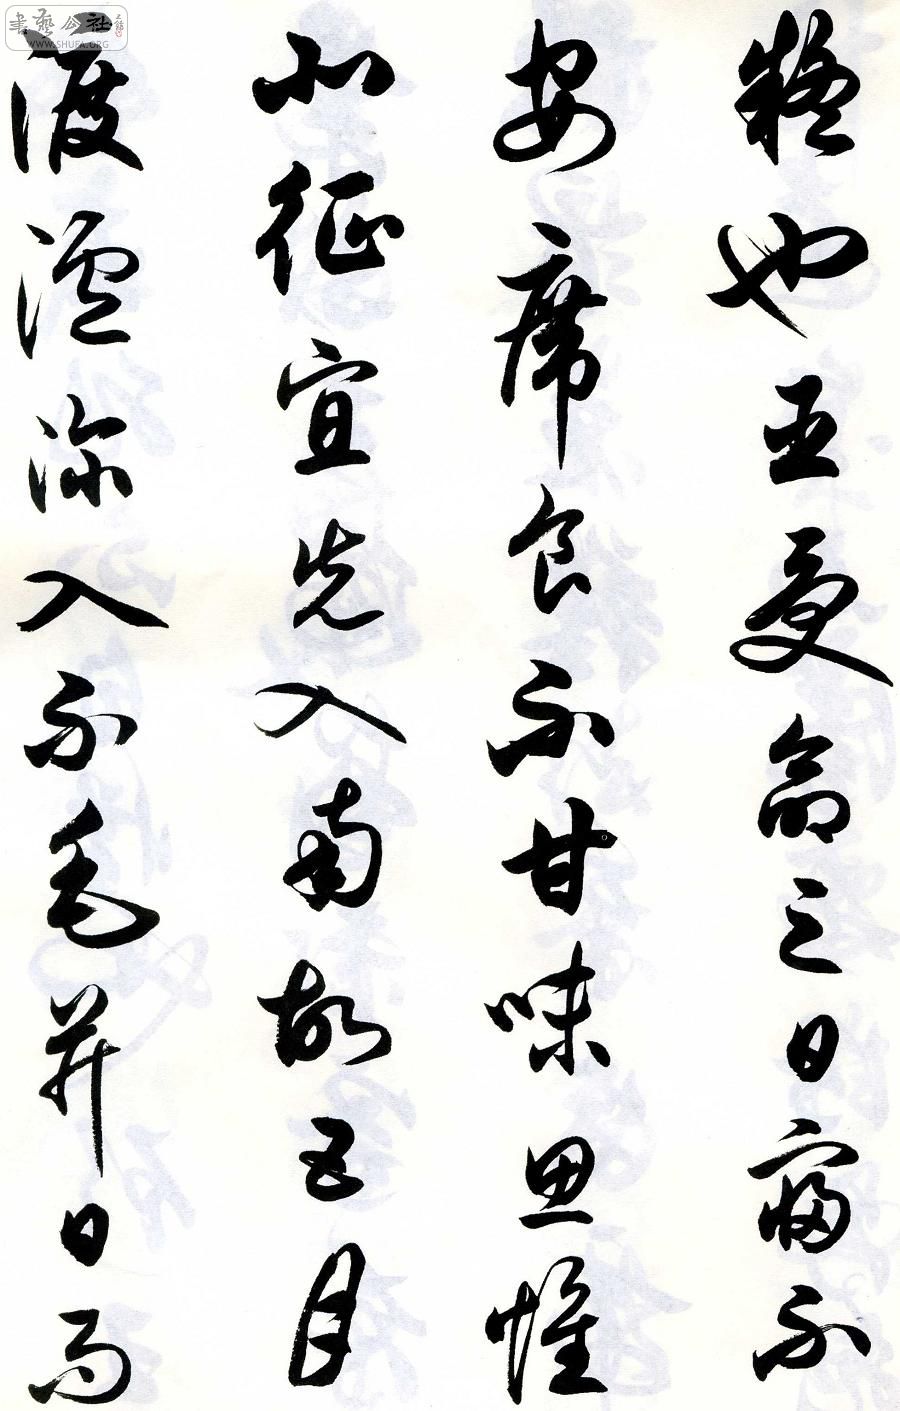 疑也臣受命之日寢不
安席食不甘味思惟
北征宜先入南故五月
渡瀘深入不毛并日而
書藝公社
WWW.SHUFA.ORG